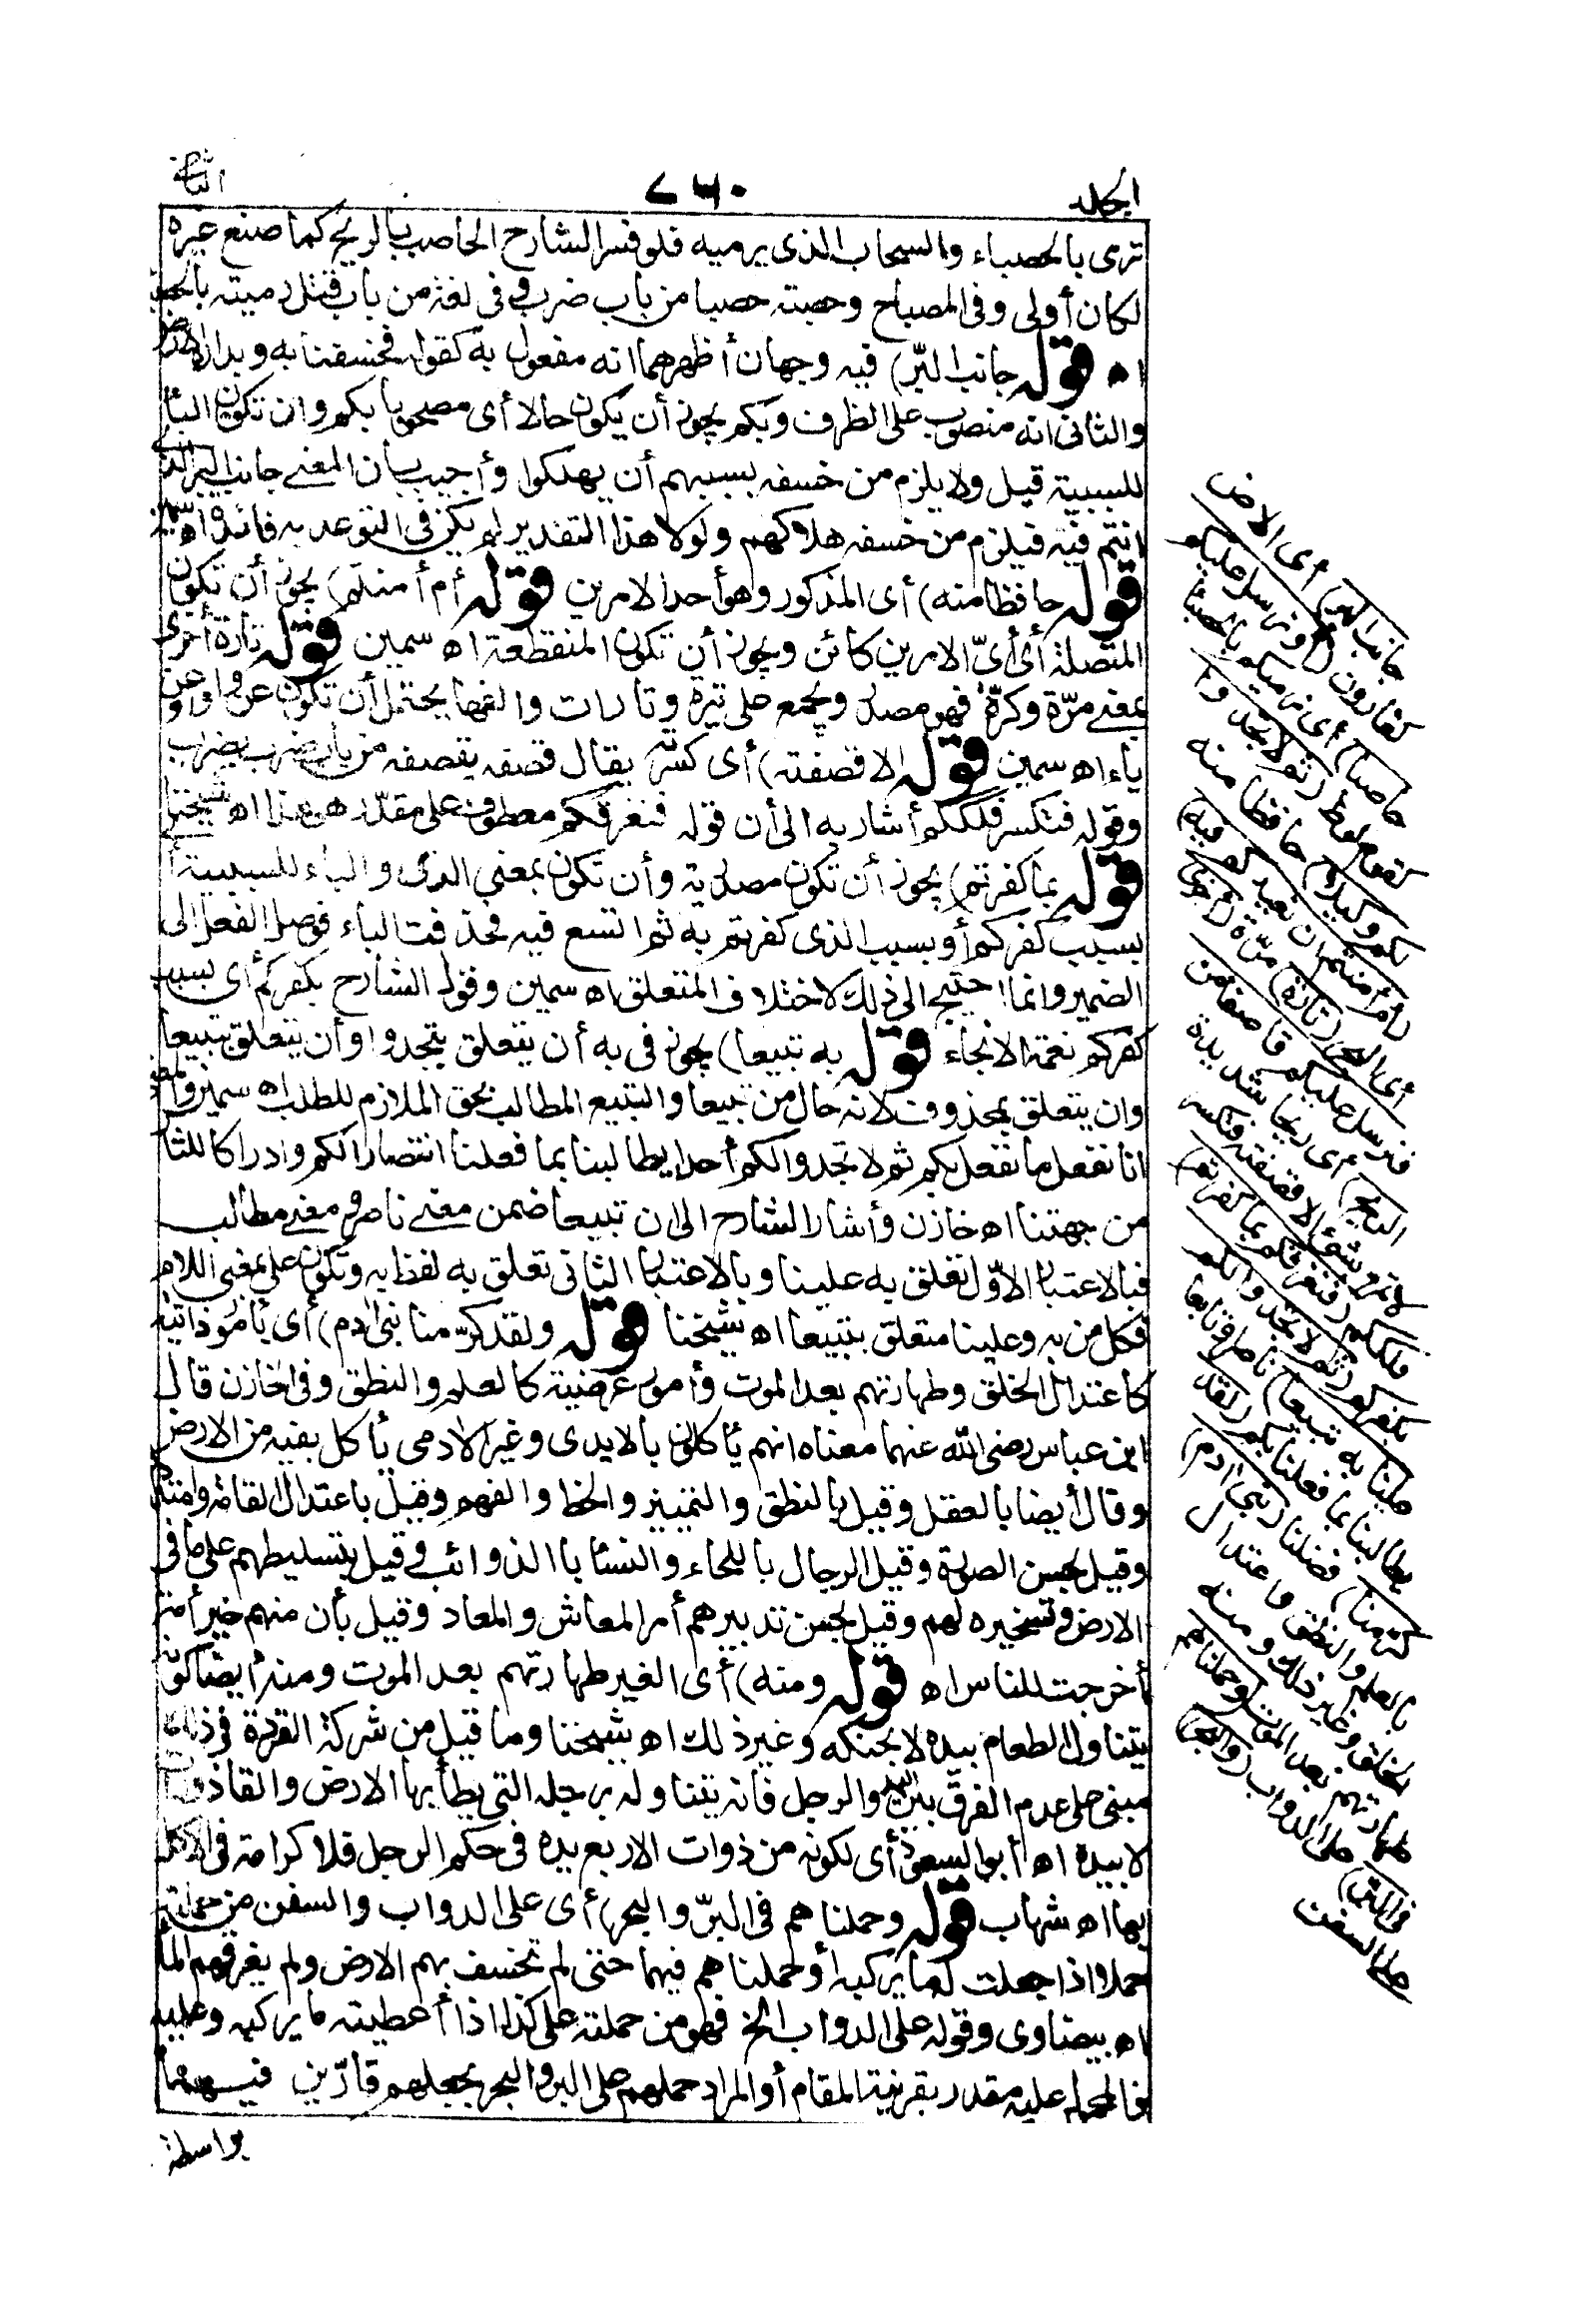 الجلد
٧٦٠
الثالث
ترى بالحصباء والسحاب الذى يرميه فلو فسر الشارح الحاصب بالريح كما صنع غيره
لكان أولى وفى المصباح وحصبته حصبا من باب ضرب وفى لغة من باب قتل رميته بالحصباء
اه قوله جانب البرّ) فيه وجهان أظهرهما انه مفعول به كقوله فخسفنا به وبداره الارض
والثانى انه منصوب على الظرف وبكم يجوز أن يكون حالا أى مصحوبا بكم وان تكون الباء
للسببية قيل ولا يلزم من خسفه بسببهم أن يهلكوا وأجيب بان المعنى جانب البر الذى
انتم فيه فيلزم من خسفه هلاكهم ولولا هذا التقدير لم يكن فى التوعد به فائدة اه سمين
قوله حافظا منه) أى المذكور وهو أحد الامرين قوله أم أمنتم) يجوز أن تكون
المتصلة أى أىّ الامرين كائن ويجوز أن تكون المنقطعة اه سمين قوله تارة أخرى
بمعنى مرّة وكرّة فهو مصدر ويجمع على تيرة وتارات والفها يحتمل أن تكون عن واو وعن
ياء اه سمين قوله الا قصفته) أى كسرته يقال قصفه يقصفه من باب ضرب يضرب
وقوله فتكسر فلككم أشار به الى أن قوله فنغرقكم معطوف على مقدّر هو هذا اه شيخنا
قوله بما كفرتم) يجوز أن تكون مصدرية وأن تكون بمعنى الذى والباء للسببية أى
بسبب كفركم أو بسبب الذى كفرتم به ثم اتسع فيه فحذفت الباء فوصل الفعل الى
الضمير وانما احتيج الى ذلك لاختلاف المتعلق اه سمين وقول الشارح بكفركم أى بسبب
كفركم نعمة الانجاء قوله به تبيعا) يجوز فى به أن يتعلق بتجدوا وأن يتعلق بتبيعا
وان يتعلق بمحذوف لانه حال من تبيعا والتبيع المطالب بحق الملازم للطلب اه سمين والمعنى
انا نفعل ما نفعل بكم ثم لا تجدوا لكم أحدا يطالبنا بما فعلنا انتصارا لكم وادراكا للثار
من جهتنا اه خازن وأشار الشارح الى ان تبيعا ضمن معنى ناصر ومعنى مطالب
فبالاعتبار الاوّل تعلق به علينا وبالاعتبار الثانى تعلق به لفظ به وتكون على بمعنى اللام
فكل من به وعلينا متعلق بتبيعا اه شيخنا قوله ولقد كرّمنا بنى اٰدم) أى بأمور ذاتية
كاعتدال الخلق وطهارتهم بعد الموت وأمور عرضية كالعلم والنطق وفى الخازن قال
ابن عباس رضى الله عنهما معناه انهم يأكلون بالايدى وغير الاٰدمى يأكل بفيه من الارض
وقال أيضا بالعقل وقيل بالنطق والتمييز والخط والفهم وقيل باعتدال القامة وامتدادها
وقيل بحسن الصورة وقيل الرجال باللحاء والنساء بالذوائب وقيل بتسليطهم على ما فى
الارض وتسخيره لهم وقيل بحسن تدبيرهم أمر المعاش والمعاد وقيل بأن منهم خير أمة
أخرجت للناس اه قوله ومنه) أى الغير طهارتهم بعد الموت ومنه أيضا كونه
يتناول الطعام بيده لا بحنكه وغير ذلك اه شيخنا وما قيل من شركة القردة فى ذلك
مبنى على عدم الفرق بين اليد والرجل فانه يتناوله برجله التى يطأ بها الارض والقاذورات
لا بيده اه أبو السعود أى لكونه من ذوات الاربع يده فى حكم الرجل فلا كرامة فى الاكل
بها اه شهاب قوله وحملناهم فى البرّ والبحر) أى على الدواب والسفن من حملته
حملا اذا جعلت له ما يركبه أو حملناهم فيهما حتى لم تخسف بهم الارض ولم يغرقهم الماء
اه بيضاوى وقوله على الدواب الخ فهو من حملته على كذا اذا أعطيته ما يركبه وعليه
فالمحمول عليه مقدر بقرينة المقام أو المراد حملهم على البر والبحر بجعلهم قارّين فيهما
بواسطة
جانب البر) أى الارض
كقارون (أو نرسل عليكم
حاصبا) أى نرميكم بالحصباء
كقوم لوط (ثم لا تجدوا
لكم وكيلا) حافظا منه
(أم أمنتم ان نعيدكم فيه)
أى البحر (تارة) مرّة (أخرى
فنرسل عليكم قاصفا من
الريح) أى ريحا شديدة
لا تمر بشئ الا قصفته فتكسر
فلككم (فنغرقكم بما كفرتم)
بكفركم (ثم لا تجدوا لكم
علينا به تبيعا) ناصرا وتابعا
يطالبنا بما فعلنا بكم (ولقد
كرّمنا) فضلنا (بنى اٰدم)
بالعلم والنطق واعتدال
الخلق وغير ذلك ومنه
طهارتهم بعد الموت (وحملناهم
فى البرّ) على الدواب (والبحر)
على السفن